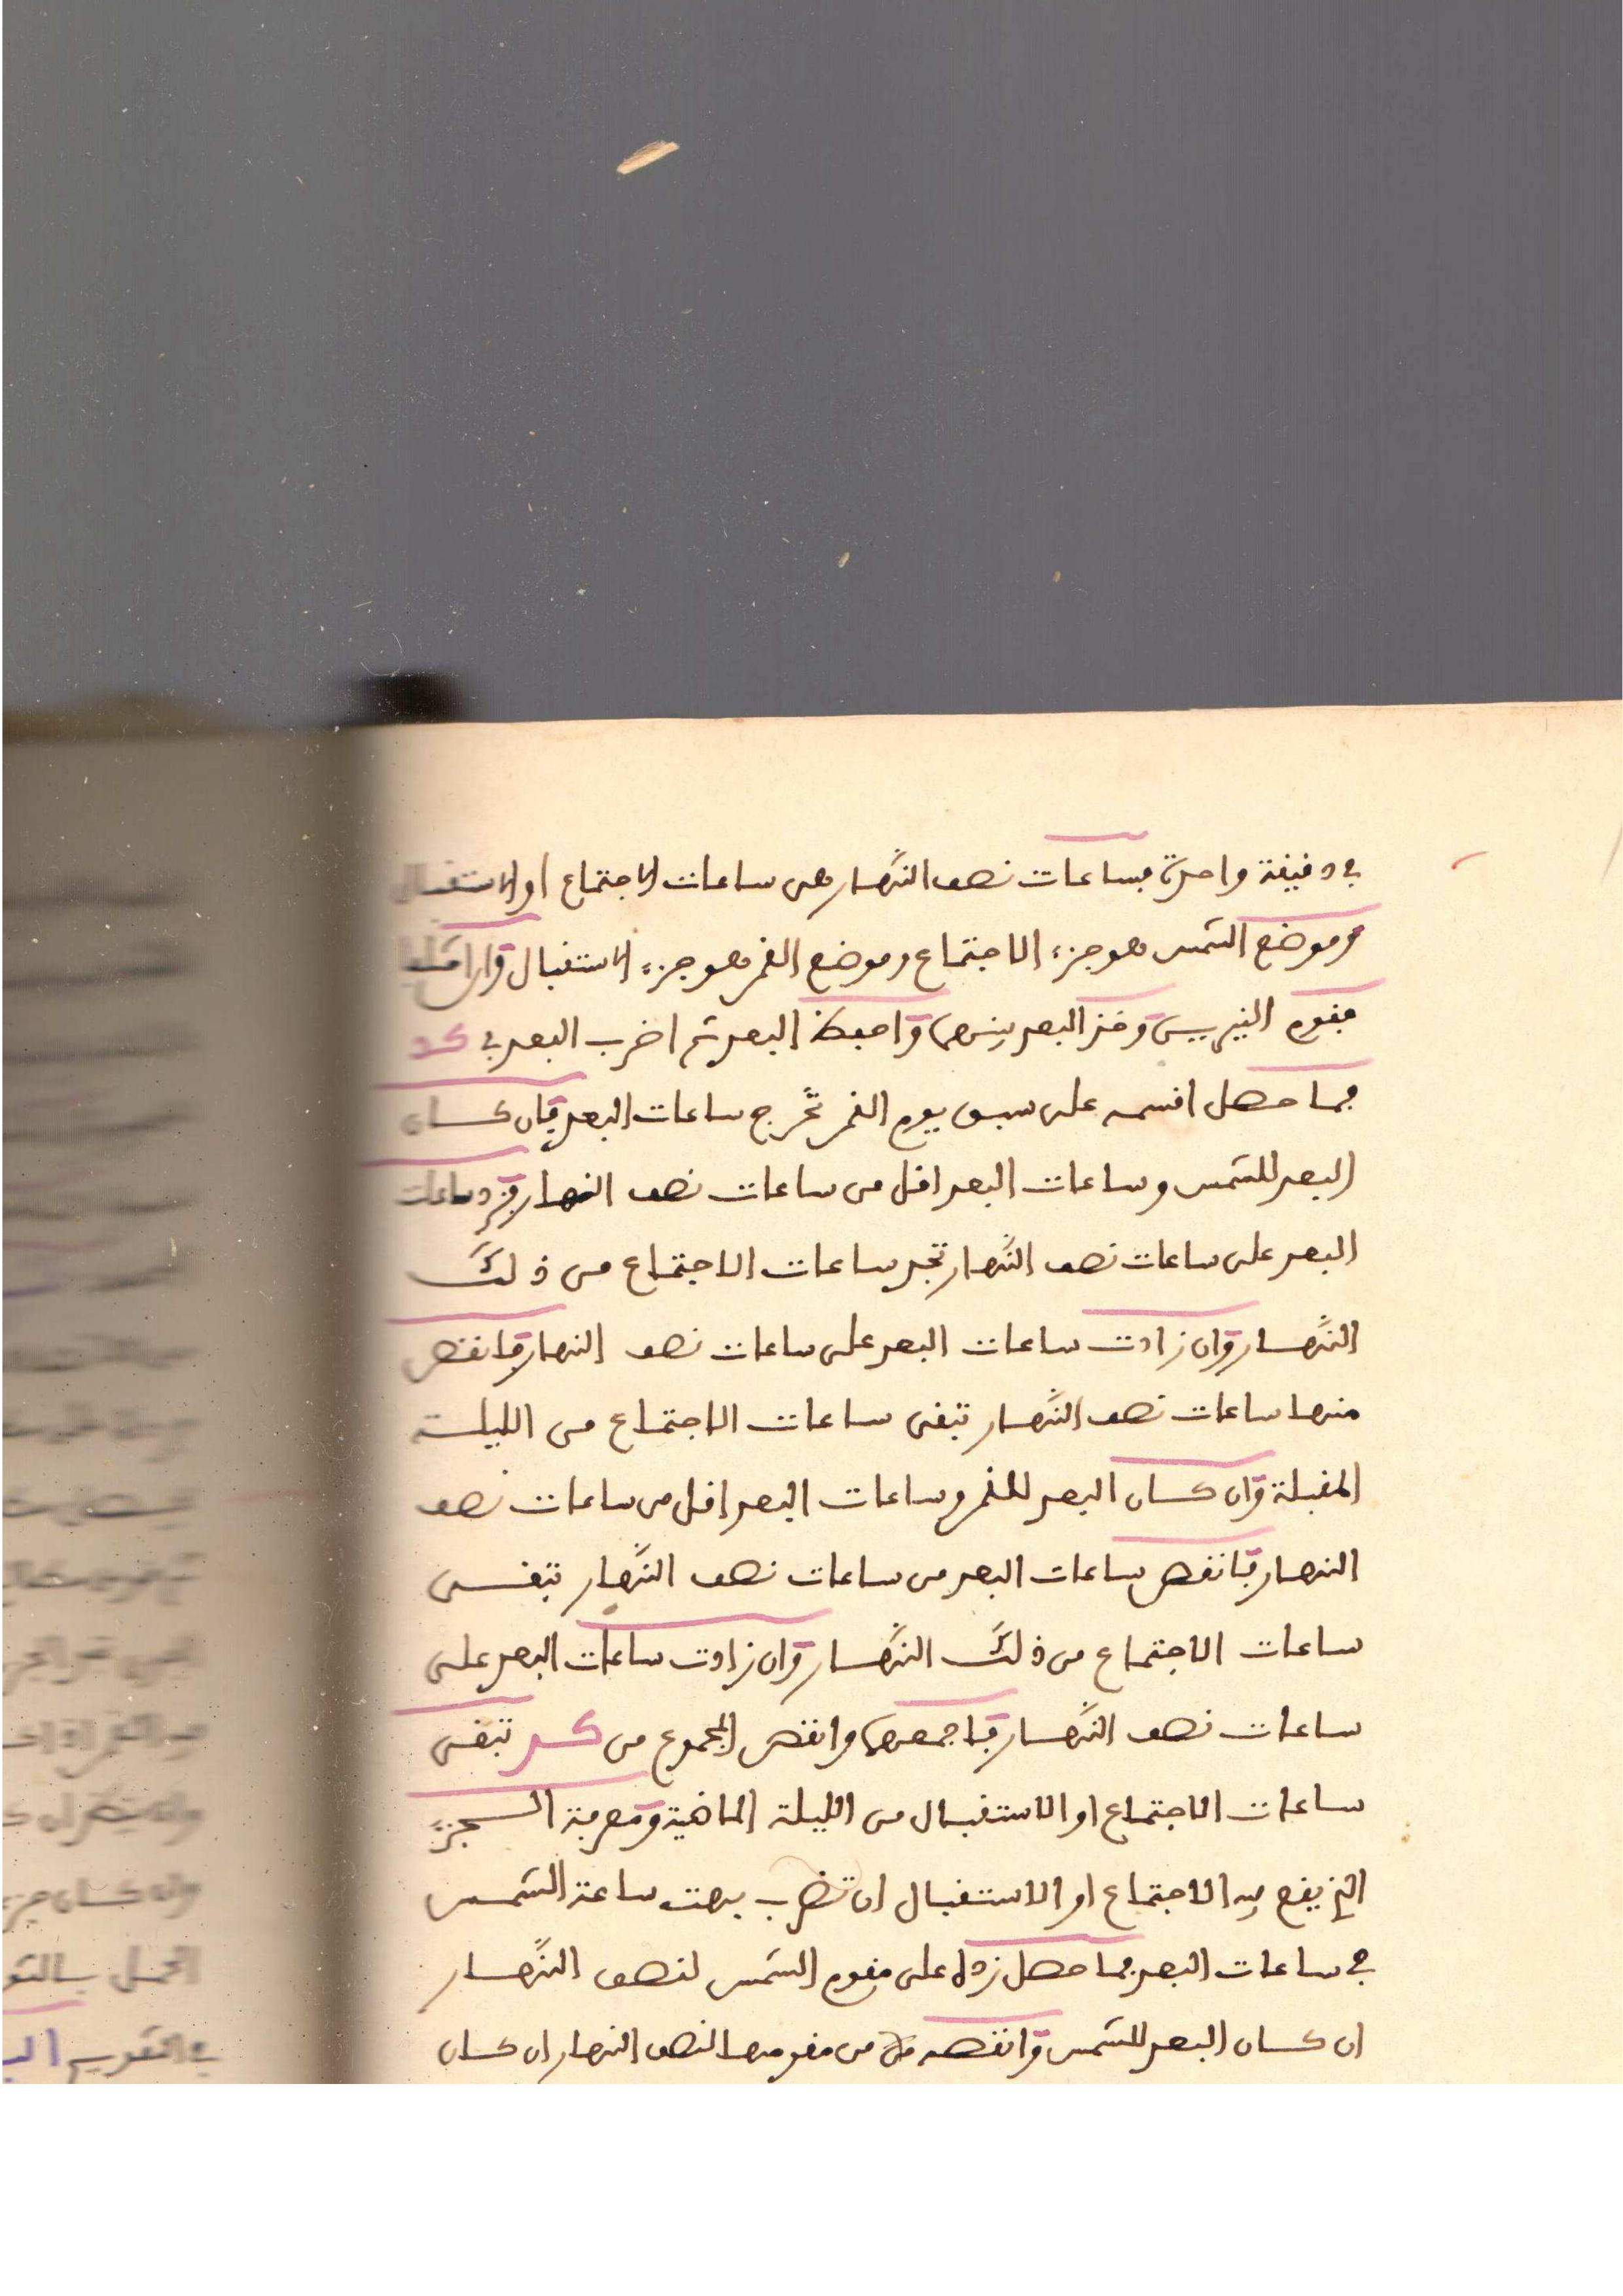 في دقيقة واحدة فساعات نصف النّهار هي ساعات الاجتماع او الاستقبال
وموضع الشمس هو جزء الاجتماع وموضع القمر هو جزء الاستقبال وان اختلفا
فقوم النيرين وخذ البعد بينهما واحفظ البعد ثم اضرب البعد في كد
فما حصل اقسمه على سبق يوم القمر تخرج ساعات البعد فان كان
البعد للشمس وساعات البعد اقل من ساعات نصف النهار فزد ساعات
البعد على ساعات نصف النّهار تجد ساعات الاجتماع من ذلك
النّهار وان زادت ساعات البعد على ساعات نصف النهار فانقص
منها ساعات نصف النّهار تبقى ساعات الاجتماع من الليلة
المقبلة وان كان البعد للقمر وساعات البعد اقل من ساعات نصف
النهار فانقص ساعات البعد من ساعات نصف النّهار تبقى
ساعات الاجتماع من ذلك النّهار وان زادت ساعات البعد على
ساعات نصف النّهار فاجمعها وانقص المجموع من كد تبقى
ساعات الاجتماع او الاستقبال من الليلة الماضية ومعرفة الجزء
الذي يقع فيه الاجتماع او الاستقبال ان تضرب بهت ساعة الشمس
في ساعات البعد فما حصل زده على مقوم الشمس لنصف النّهار
ان كان البعد للشمس وانقصه من مقومها لنصف النهار ان كان